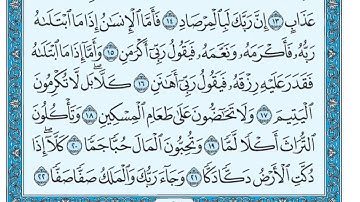 عَذَابٍ ١٣ إِنَّ رَبَّكَ لَبِٱلْمِرْصَادِ ١٤ فَأَمَّا ٱلْإِنسَٰنُ إِذَا مَا ٱبْتَلَىٰهُ
رَبُّهُۥ فَأَكْرَمَهُۥ وَنَعَّمَهُۥ فَيَقُولُ رَبِّىٓ أَكْرَمَنِ ١٥ وَأَمَّآ إِذَا مَا ٱبْتَلَىٰهُ
فَقَدَرَ عَلَيْهِ رِزْقَهُۥ فَيَقُولُ رَبِّىٓ أَهَٰنَنِ ١٦ كَلَّا ۖ بَل لَّا تُكْرِمُونَ
ٱلْيَتِيمَ ١٧ وَلَا تَحَٰٓضُّونَ عَلَىٰ طَعَامِ ٱلْمِسْكِينِ ١٨ وَتَأْكُلُونَ
ٱلتُّرَاثَ أَكْلًا لَّمًّا ١٩ وَتُحِبُّونَ ٱلْمَالَ حُبًّا جَمًّا ٢٠ كَلَّآ ۖ إِذَا
دُكَّتِ ٱلْأَرْضُ دَكًّا دَكًّا ٢١ وَجَآءَ رَبُّكَ وَٱلْمَلَكُ صَفًّا صَفًّا ٢٢